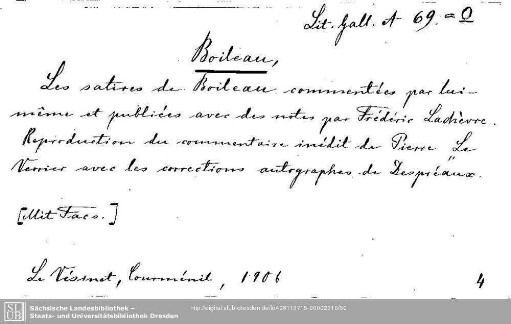 Lit. Gall. A 69. = Q
Boileau,
Les satires de Boileau commentées par lui-
même et publiées avec des notes par Frédéric Lachèvre.
Reproduction du commentaire inédit de Pierre Le
Verrier avec les corrections autographes de Despréaux.
[Mit Facs.]
Le Vésinet, Courménil, 1906
4
SLUB
Sächsische Landesbibliothek –
Staats- und Universitätsbibliothek Dresden